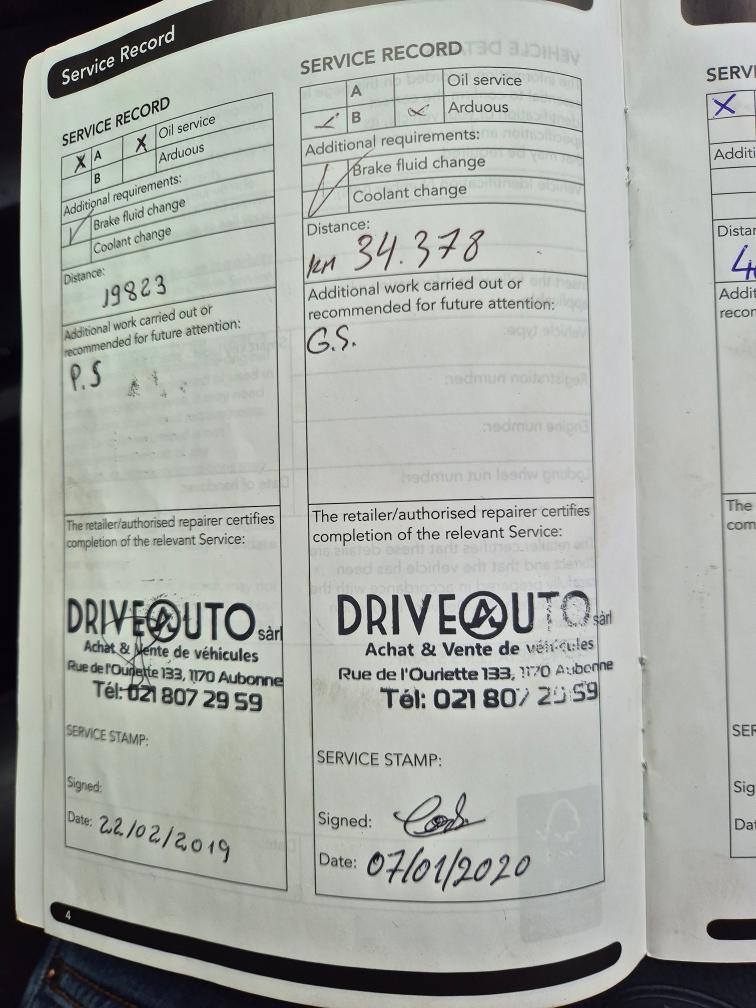 Service Record
SERVICE RECORD
X A X Oil service
B Arduous
Additional requirements:
Brake fluid change
Coolant change
Distance:
19823
Additional work carried out or
recommended for future attention:
P.S
The retailer/authorised repairer certifies
completion of the relevant Service:
DRIVEAUTO sàrl
Achat & Vente de véhicules
Rue de l'Ouriette 133, 1170 Aubonne
Tél: 021 807 29 59
SERVICE STAMP:
Signed:
Date: 22/02/2019
4
SERVICE RECORD
A Oil service
B Arduous
Additional requirements:
Brake fluid change
Coolant change
Distance:
km 34.378
Additional work carried out or
recommended for future attention:
G.S.
The retailer/authorised repairer certifies
completion of the relevant Service:
DRIVEAUTO sàrl
Achat & Vente de véhicules
Rue de l'Ouriette 133, 1170 Aubonne
Tél: 021 807 29 59
SERVICE STAMP:
Signed:
Date: 07/01/2020
SERVI
X
Additi
Distan
4
Addit
recon
The
com
SER
Sig
Dat